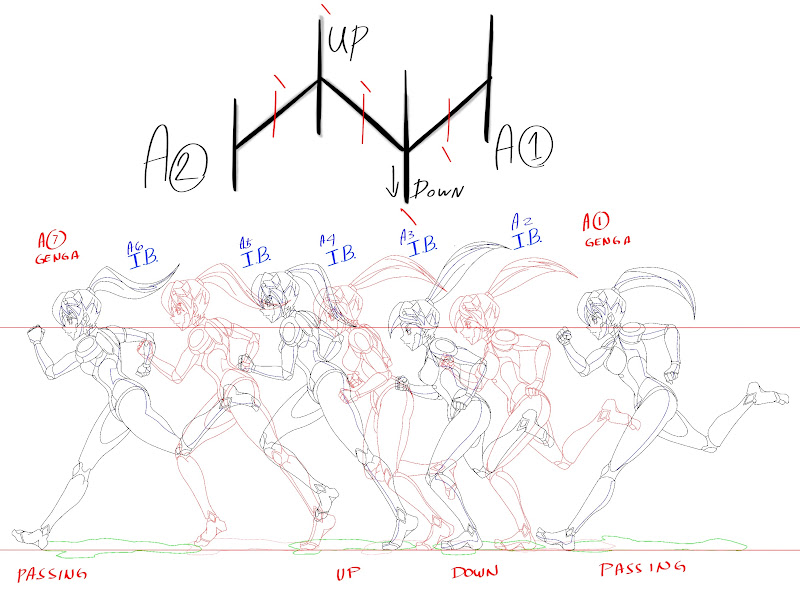 UP
A②
A①
DOWN
A⑦
GENGA
A6
I.B.
A5
I.B.
A4
I.B.
A3
I.B.
A2
I.B.
A①
GENGA
PASSING
UP
DOWN
PASSING